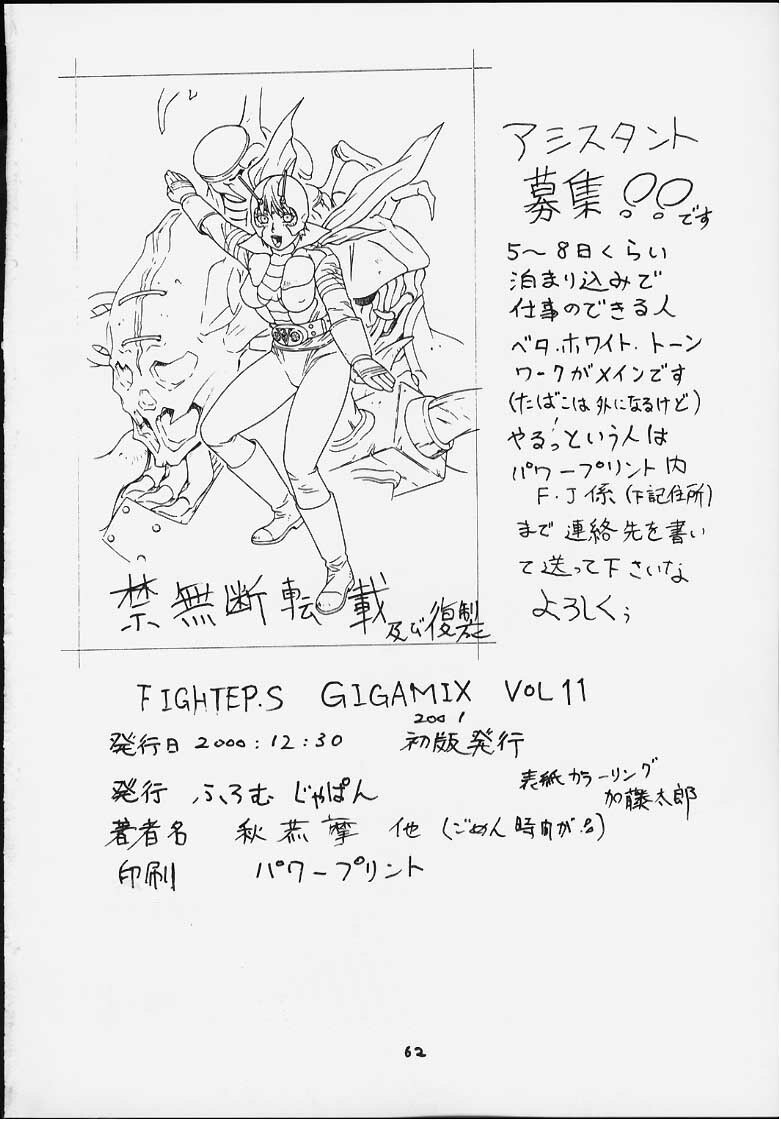 アシスタント
募集!!です
5〜8日くらい
泊まり込みで
仕事のできる人
ベタ.ホワイト.トーン
ワークがメインです
(たばこは外になるけど)
やるっ!という人は
パワープリント内
F.J係(下記住所)
まで連絡先を書い
て送って下さいな
よろしくぅ
禁無断転載
及び復製
FIGHTEP.S GIGAMIX VOL 11
発行日 2000:12:30 2001 初版発行
発行 ふろむ じゃぱん
表紙カラーリング
加藤太郎
著者名 秋恭摩 他 (ごめん時間が
印刷 パワープリント
62